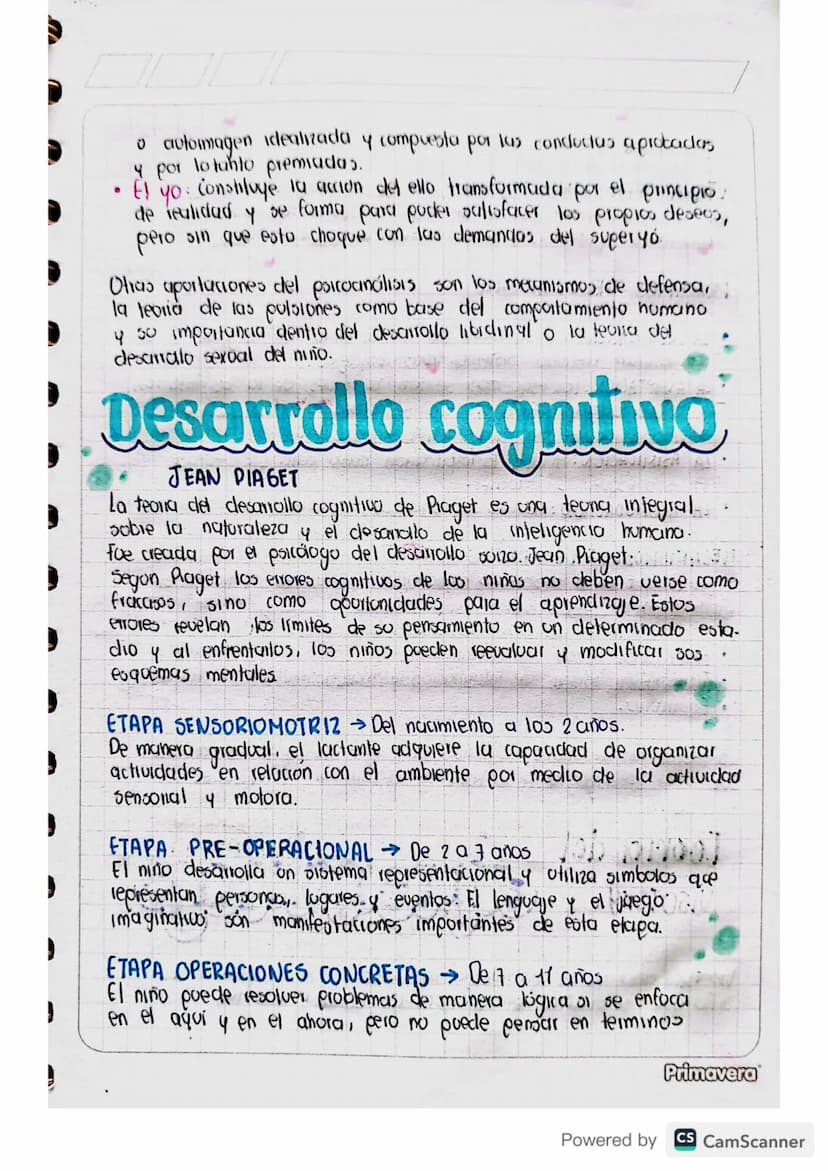 o autoimagen idealizada y compuesta por las conductas aprobadas
y por lo tanto premiadas.
• El yo: Constituye la acción del ello transformada por el principio
de realidad y se forma para poder satisfacer los propios deseos,
pero sin que esto choque con las demandas del superyó.
Otras aportaciones del psicoanálisis son los mecanismos de defensa,
la teoría de las pulsiones como base del comportamiento humano
y su importancia dentro del desarrollo libidinal o la teoría del
desarrollo sexual del niño.
Desarrollo cognitivo
JEAN PIAGET
La teoría del desarrollo cognitivo de Piaget es una teoría integral
sobre la naturaleza y el desarrollo de la inteligencia humana.
Fue creada por el psicólogo del desarrollo suizo Jean Piaget.
Segun Piaget, los errores cognitivos de los niños no deben verse como
fracasos, sino como oportunidades para el aprendizaje. Estos
errores revelan los límites de su pensamiento en un determinado esta-
dio y al enfrentarlos, los niños pueden reevaluar y modificar sus
esquemas mentales.
ETAPA SENSORIOMOTRIZ → Del nacimiento a los 2 años.
De manera gradual, el lactante adquiere la capacidad de organizar
actividades en relación con el ambiente por medio de la actividad
sensorial y motora.
ETAPA PRE-OPERACIONAL → De 2 a 7 años
El niño desarrolla un sistema representacional y utiliza simbolos que
representan personas, lugares y eventos. El lenguaje y el juego
imaginativo son manifestaciones importantes de esta etapa.
ETAPA OPERACIONES CONCRETAS → De 7 a 11 años
El niño puede resolver problemas de manera lógica si se enfoca
en el aquí y en el ahora, pero no puede pensar en terminos
Primavera
Powered by CS CamScanner